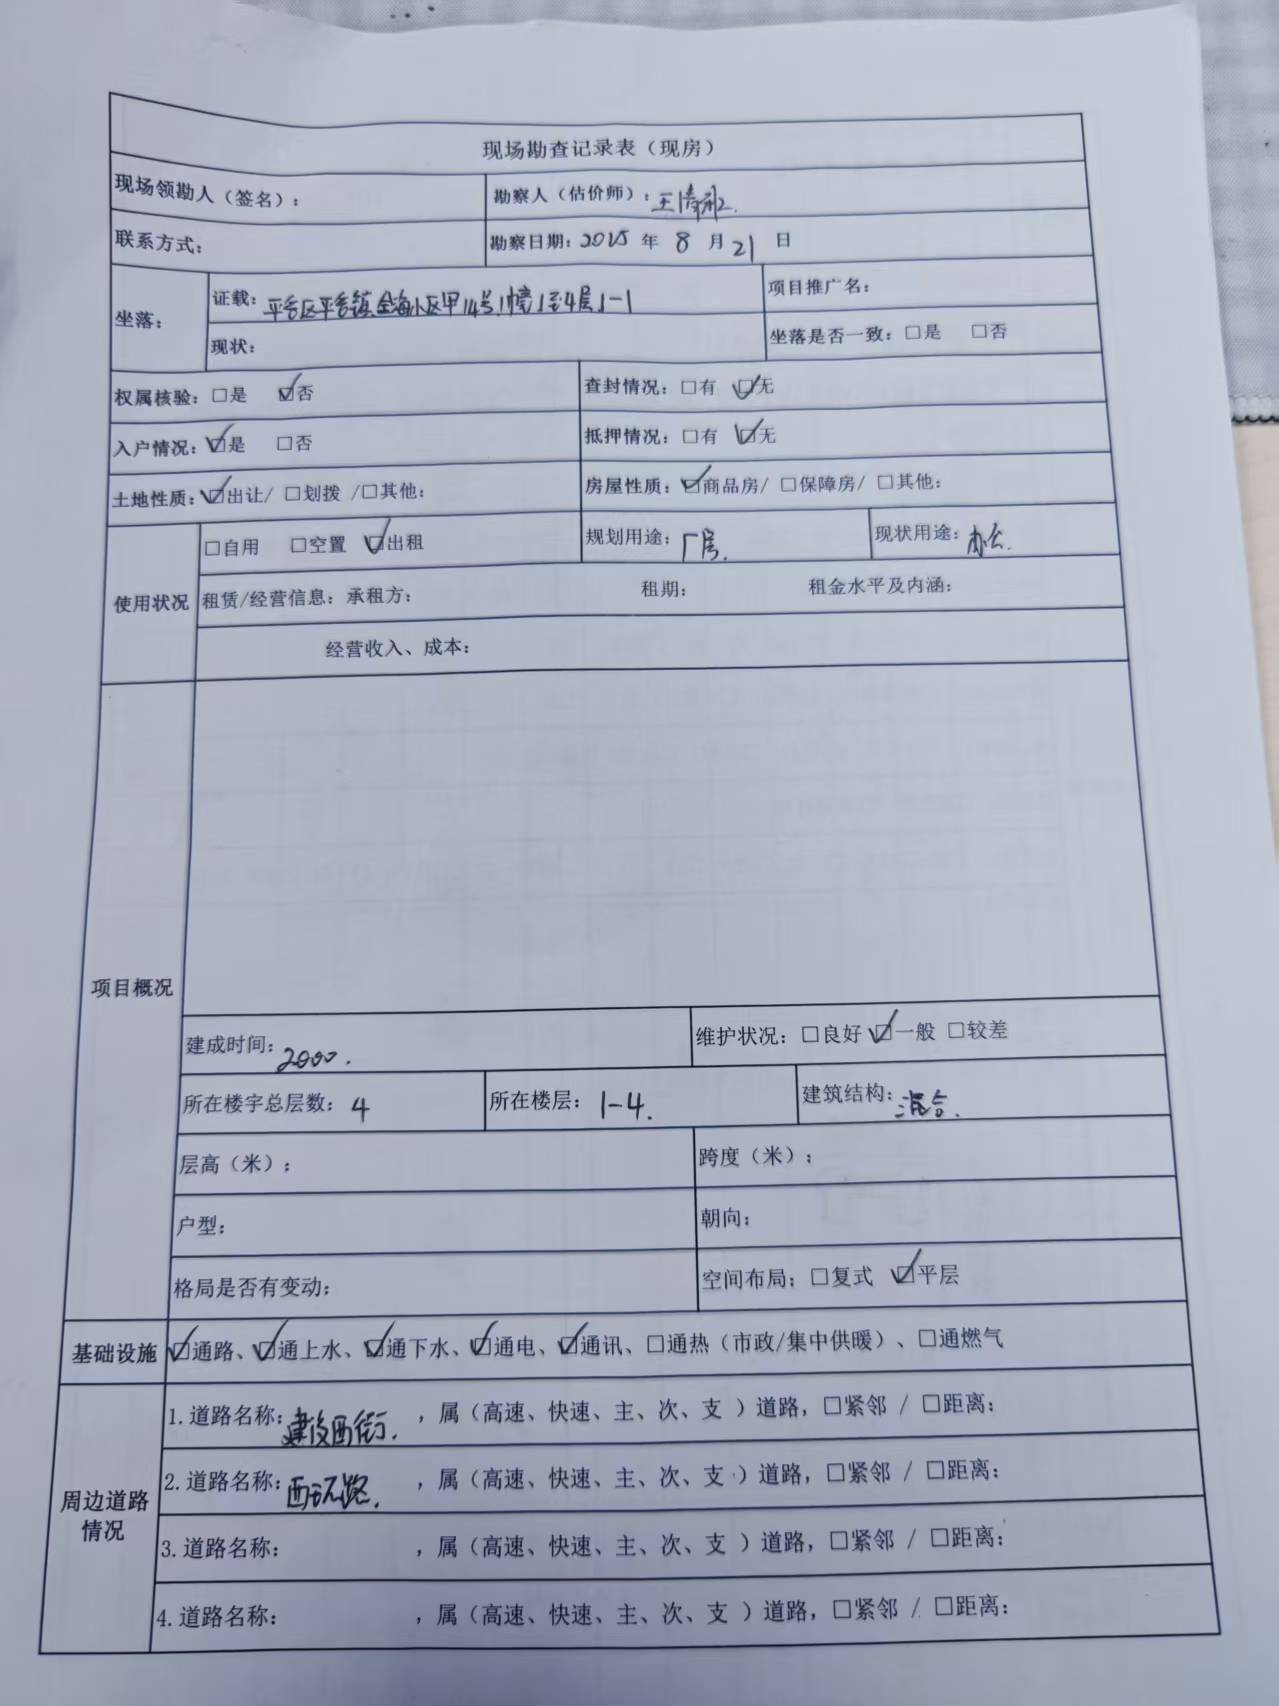 现场勘查记录表（现房）
现场领勘人（签名）： 勘察人（估价师）：王
联系方式： 勘察日期：2025 年 8 月 21 日
坐落： 证载：平谷区平谷镇金海小区甲14号1幢1至4层1-1 项目推广名：
现状： 坐落是否一致：□是 □否
权属核验：□是 ☑否 查封情况：□有 ☑无
入户情况：☑是 □否 抵押情况：□有 ☑无
土地性质：☑出让/ □划拨 /□其他： 房屋性质：☑商品房/ □保障房/ □其他：
使用状况 □自用 □空置 ☑出租 规划用途：厂房. 现状用途：办公.
租赁/经营信息：承租方： 租期： 租金水平及内涵：
经营收入、成本：
项目概况
建成时间：2000. 维护状况：□良好 ☑一般 □较差
所在楼宇总层数：4 所在楼层：1-4. 建筑结构：混合.
层高（米）； 跨度（米）；
户型： 朝向；
格局是否有变动； 空间布局；□复式 ☑平层
基础设施 ☑通路、☑通上水、☑通下水、☑通电、☑通讯、□通热（市政/集中供暖）、□通燃气
周边道路情况 1.道路名称：建设西街. ，属（高速、快速、主、次、支 ）道路，□紧邻 / □距离；
2.道路名称：西环路. ，属（高速、快速、主、次、支 ）道路，□紧邻 / □距离；
3.道路名称： ，属（高速、快速、主、次、支 ）道路，□紧邻 / □距离；
4.道路名称： ，属（高速、快速、主、次、支 ）道路，□紧邻 / □距离；